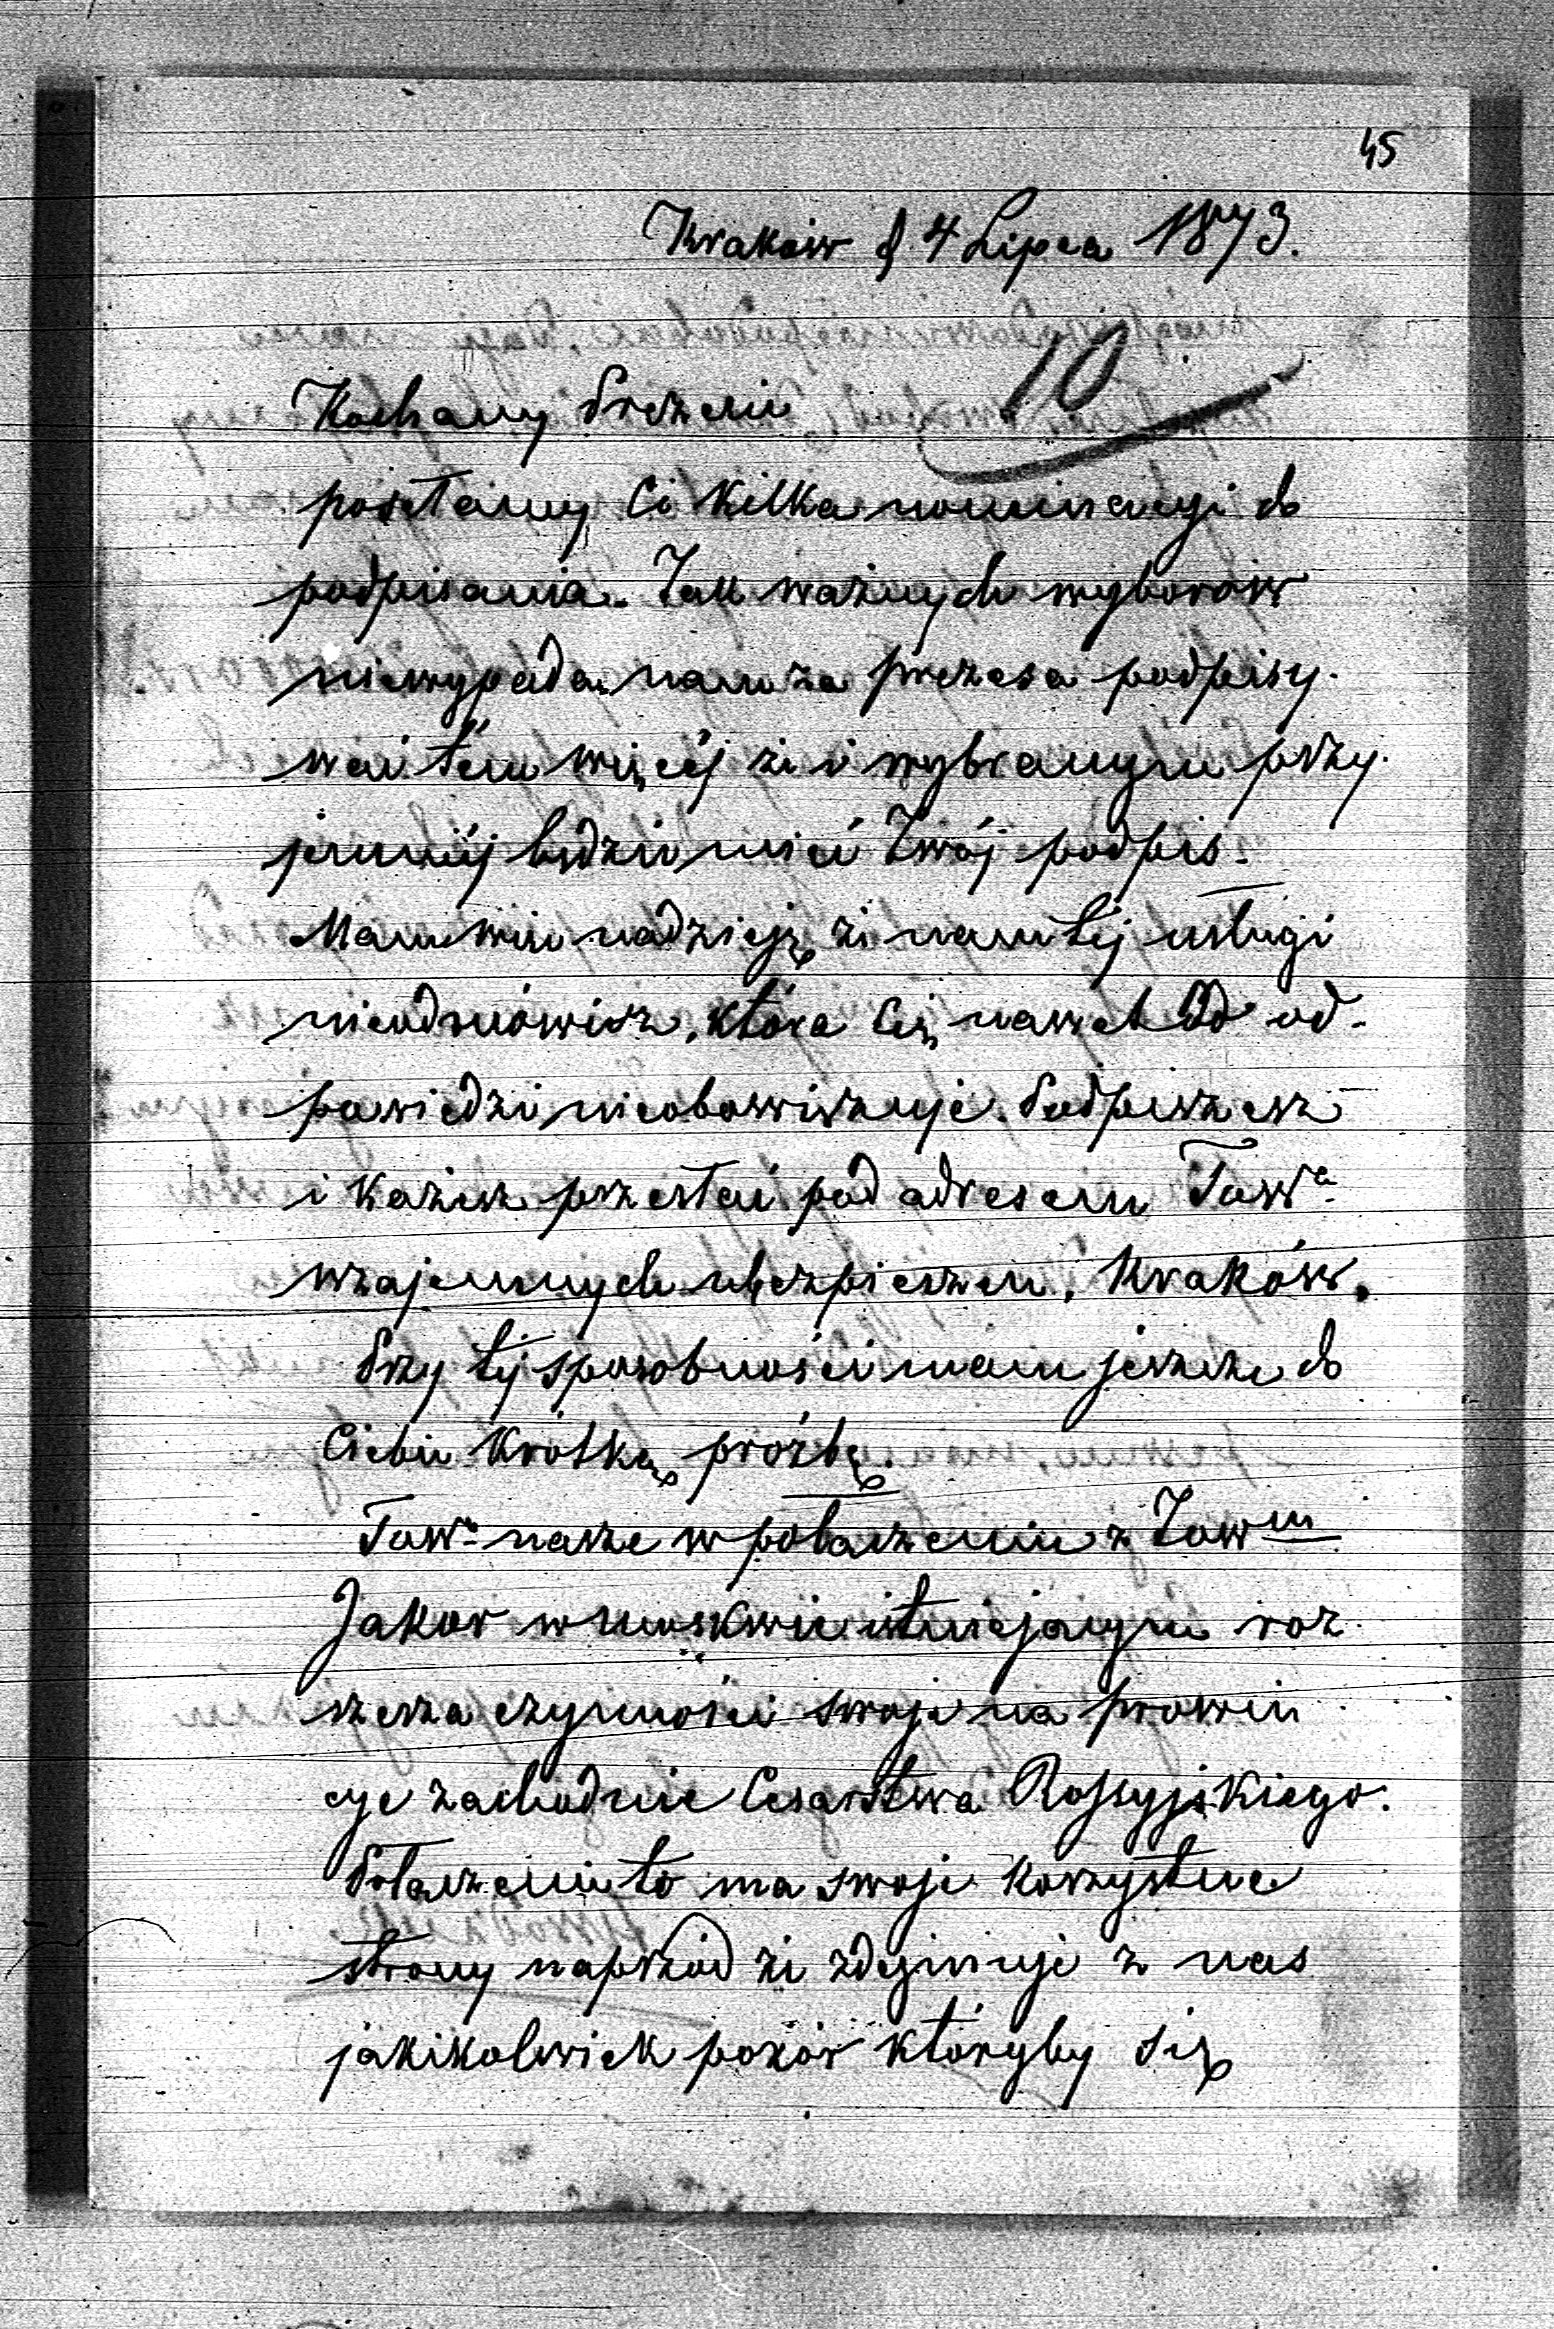 45
Kraków d. 4 Lipca 1873.
10
Kochany Prezesie
posełamy Ci kilka nominacyi do
podpisania. Tak ważnych wyborów
niewypada nam za prezesa podpisy-
wać tém więcéj że i wybranym przy-
jemniéj będzie mieć Twój podpis.
Mam więc nadzieję że nam téj usługi
nieodmówisz, która Cię nawet do od-
powiedzi nieobowiązuje. Podpiszesz
i każesz przesłać pod adresem Towa
wzajemnych ubezpieczeń, Kraków.
Przy téj sposobności mam jeszcze do
Ciebie krótką prośbę.
Towo nasze w połączeniu z Towm
Jakor w Moskwie istniejącym roz-
szerza czynności swoje na prowin-
cye zachodnie Cesarstwa Rossyjskiego.
Połączenie to ma swoje korzystne
strony naprzód że zdejmuje z nas
jakikolwiek pozór któryby się